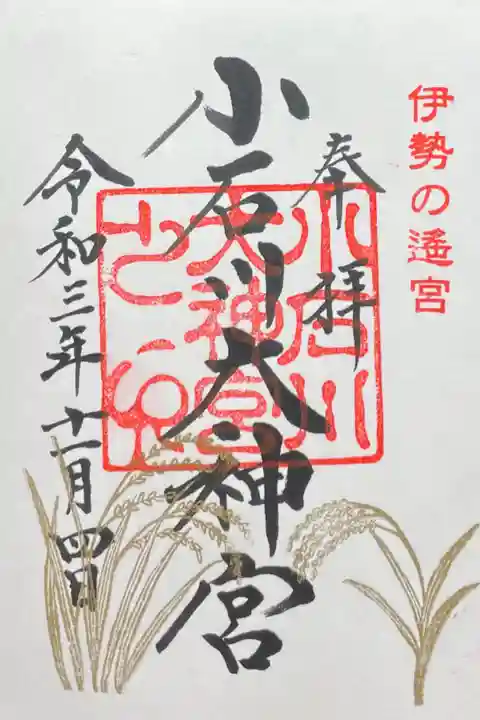 伊勢の遙宮
奉拝
小石川大神宮
小石川
大神宮
令和三年十一月四日